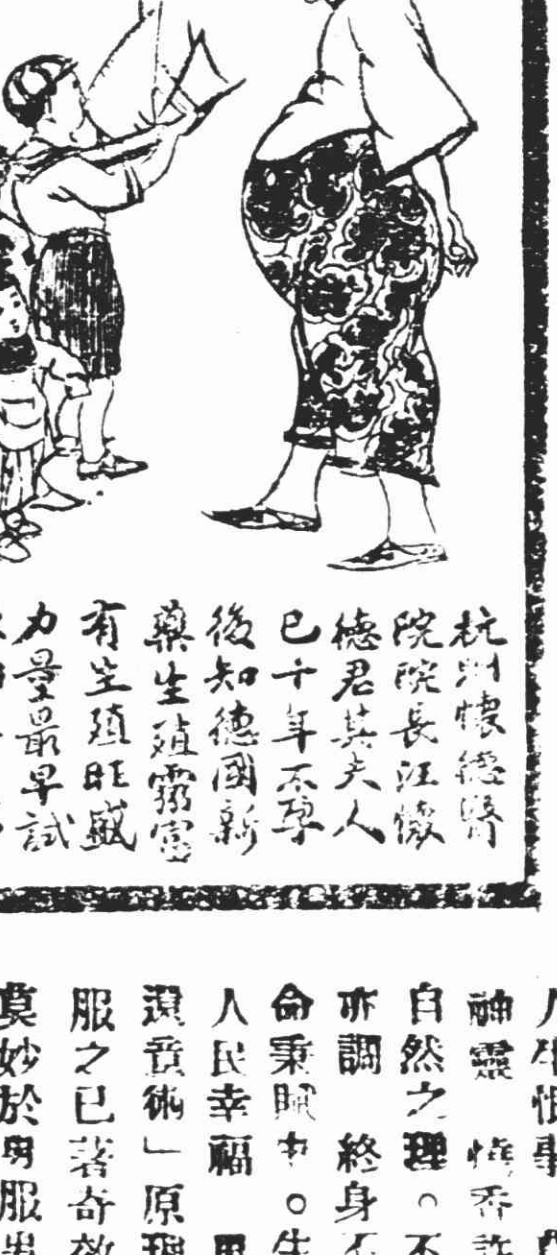 杭州懷德醫
院院長汪懷
德君其夫人
已十年不孕
後知德國新
藥生殖靈富
有生殖旺盛
力量最早試
神靈
自然之理。不
亦調 終身不
命秉賦中。生
人民幸福
還童術」原理
服之已著奇效
莫妙於男服